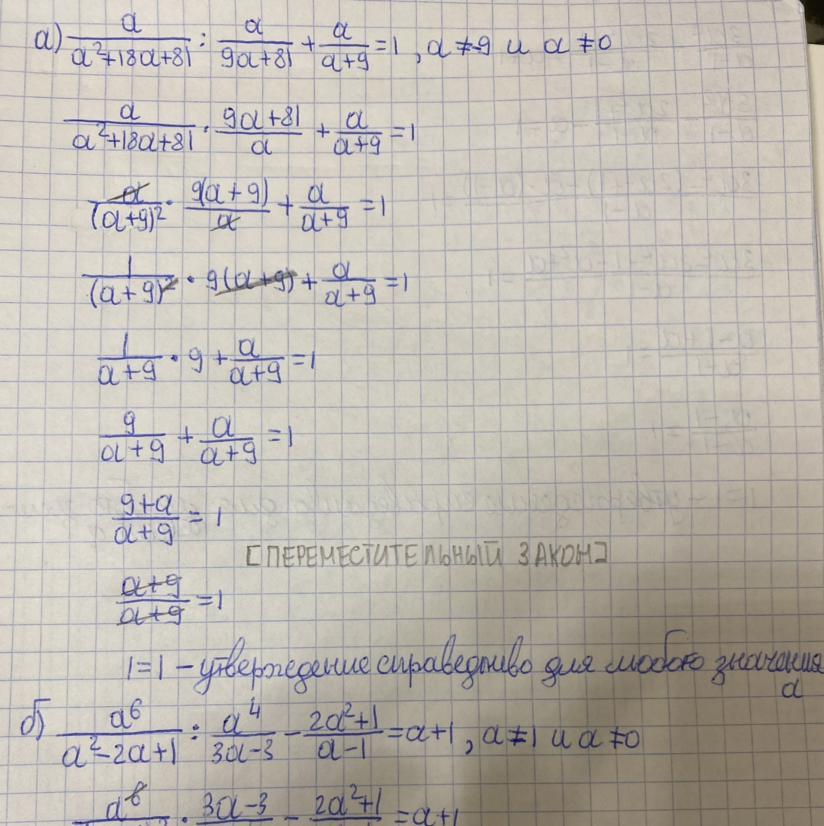 а) a/(a²+18a+81) : a/(9a+81) + a/(a+9) = 1 , a ≠ -9 и a ≠ 0
a/(a²+18a+81) · (9a+81)/a + a/(a+9) = 1
a/(a+9)² · 9(a+9)/a + a/(a+9) = 1
1/(a+9)² · 9(a+9) + a/(a+9) = 1
1/(a+9) · 9 + a/(a+9) = 1
9/(a+9) + a/(a+9) = 1
(9+a)/(a+9) = 1
[ПЕРЕМЕСТИТЕЛЬНЫЙ ЗАКОН]
(a+9)/(a+9) = 1
1=1 – утверждение справедливо для любого значения
a
б) a⁶/(a²-2a+1) : a⁴/(3a-3) - (2a²+1)/(a-1) = a+1 , a ≠ 1 и a ≠ 0
a⁶ · (3a-3) - (2a²+1) = a+1